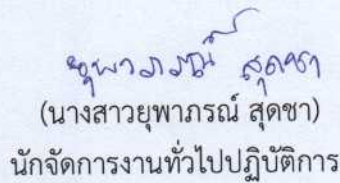 ยุพาภรณ์ สุดชา
(นางสาวยุพาภรณ์ สุดชา)
นักจัดการงานทั่วไปปฏิบัติการ